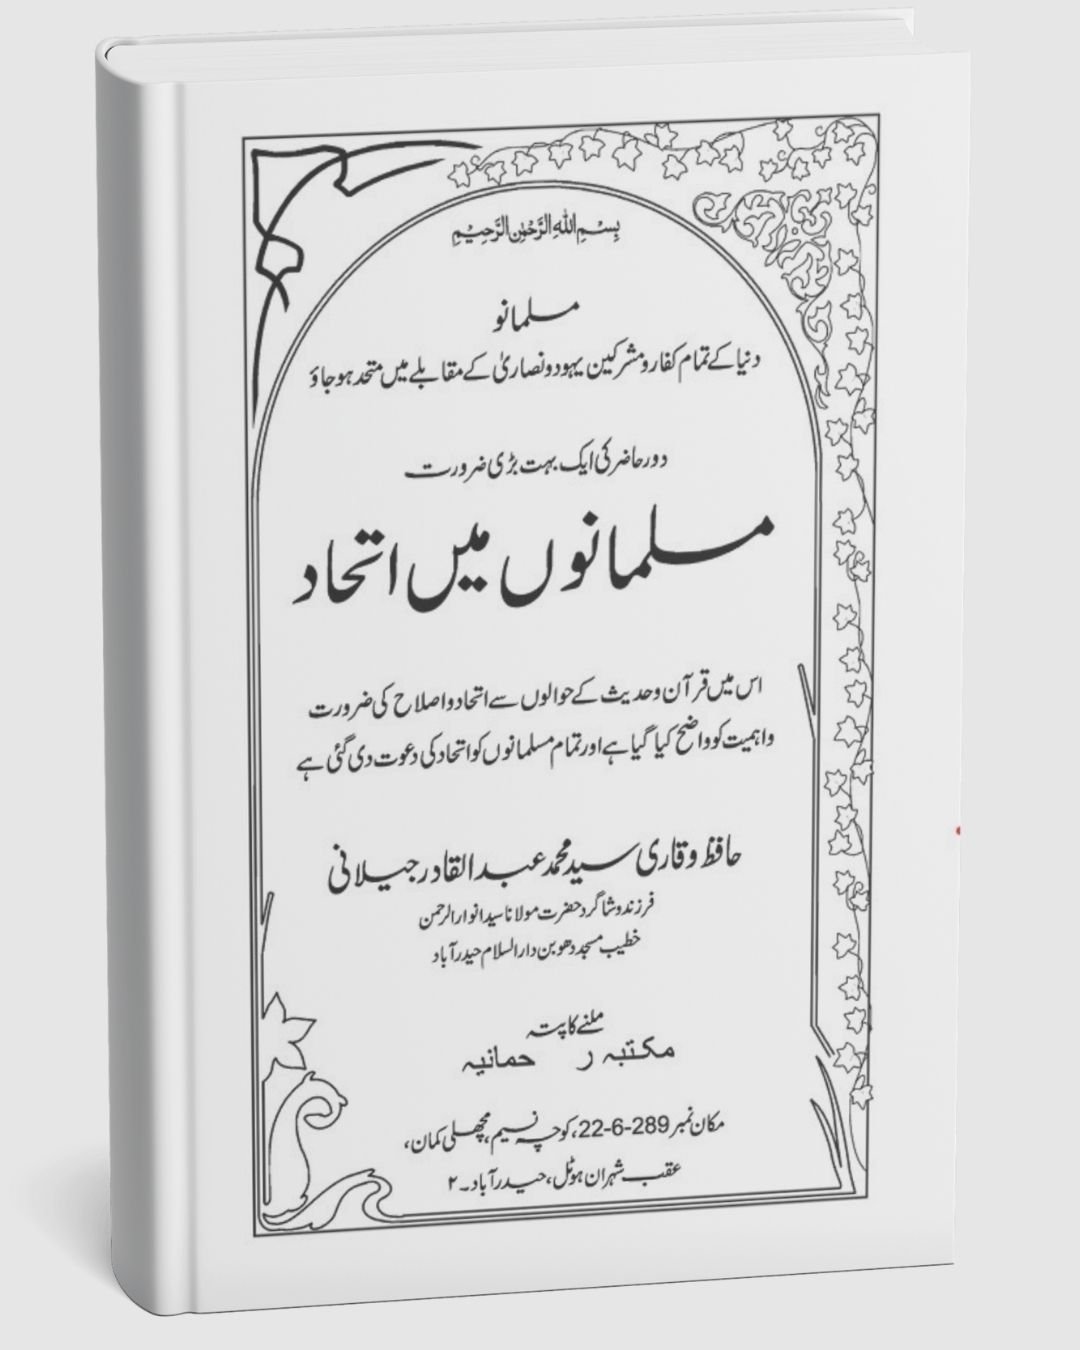 بِسْمِ اللهِ الرَّحْمٰنِ الرَّحِيْمِ
مسلمانو
دنیا کے تمام کفار ومشرکین یہود ونصاریٰ کے مقابلے میں متحد ہوجاؤ
دور حاضر کی ایک بہت بڑی ضرورت
مسلمانوں میں اتحاد
اس میں قرآن وحدیث کے حوالوں سے اتحاد واصلاح کی ضرورت
واہمیت کو واضح کیا گیا ہے اور تمام مسلمانوں کو اتحاد کی دعوت دی گئی ہے
حافظ وقاری سید محمد عبدالقادر جیلانی
فرزند وشاگرد حضرت مولانا سید انوار الرحمن
خطیب مسجد دھوبن دارالسلام حیدرآباد
ملنے کا پتہ
مکتبہ ر حمانیہ
مکان نمبر 289-6-22، کوچہ نسیم، مچھلی کمان،
عقب شہران ہوٹل، حیدرآباد۔۲